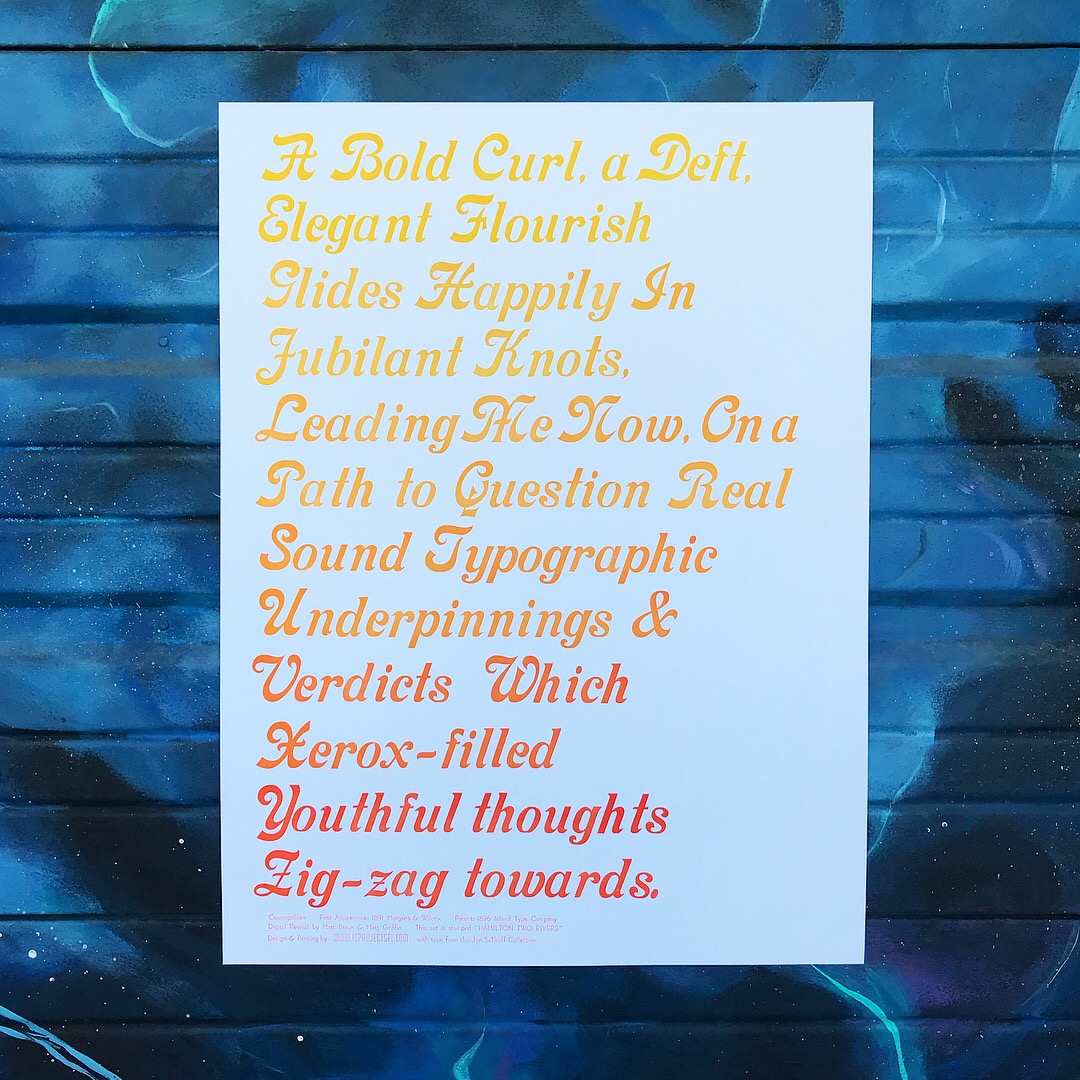 A Bold Curl, a Deft,
Elegant Flourish
Glides Happily In
Jubilant Knots,
Leading Me Now, On a
Path to Question Real
Sound Typographic
Underpinnings &
Verdicts Which
Xerox-filled
Youthful thoughts
Zig-zag towards.
Cosmopolitan First Appearances 1891 Morgans & Wilcox Patents 1896 Inland Type Company
Digital Revival by Matt Braun & Matt Griffin This set is stamped "HAMILTON TWO RIVERS"
Design & Printing by WWW.ICPROJECTSFL.COM with type from the Jim Collection